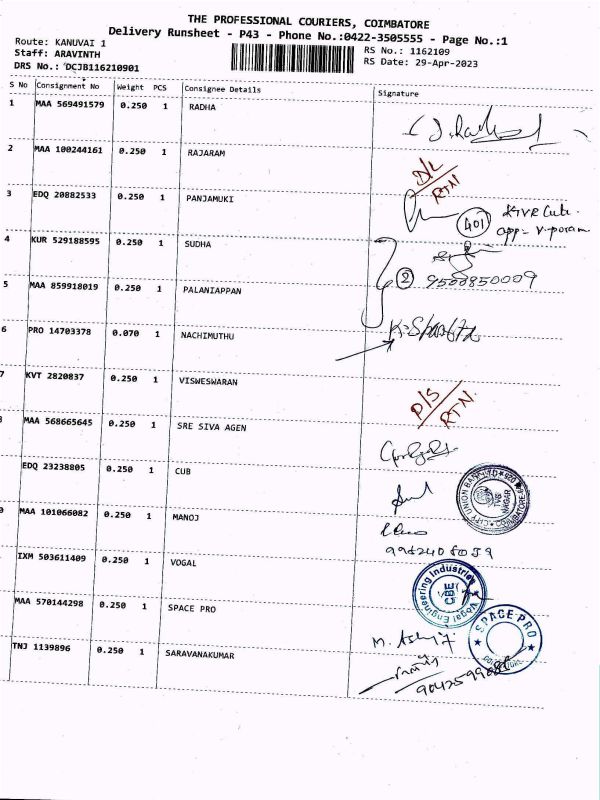 THE PROFESSIONAL COURIERS, COIMBATORE
Delivery Runsheet - P43 - Phone No.:0422-3505555 - Page No.:1
Route: KANUVAI 1
Staff: ARAVINTH
DRS No.: DCJB116210901
RS No.: 1162109
RS Date: 29-Apr-2023
S No Consignment No Weight PCS Consignee Details Signature
1 MAA 569491579 0.250 1 RADHA
2 MAA 100244161 0.250 1 RAJARAM D/L RTN
3 EDQ 20882533 0.250 1 PANJAMUKI 401
app- V-puram
4 KUR 529188595 0.250 1 SUDHA
2 9500850009
5 MAA 859918019 0.250 1 PALANIAPPAN
6 PRO 14703378 0.070 1 NACHIMUTHU
7 KVT 2820837 0.250 1 VISWESWARAN D/S RTN
MAA 568665645 0.250 1 SRE SIVA AGEN
EDQ 23238805 0.250 1 CUB CITY UNION BANK LTD TVS NAGAR COIMBATORE
MAA 101066082 0.250 1 MANOJ
IXM 503611409 0.250 1 VOGAL Vogal Engineering Industries CBE
MAA 570144298 0.250 1 SPACE PRO SPACE-PRO
TNJ 1139896 0.250 1 SARAVANAKUMAR